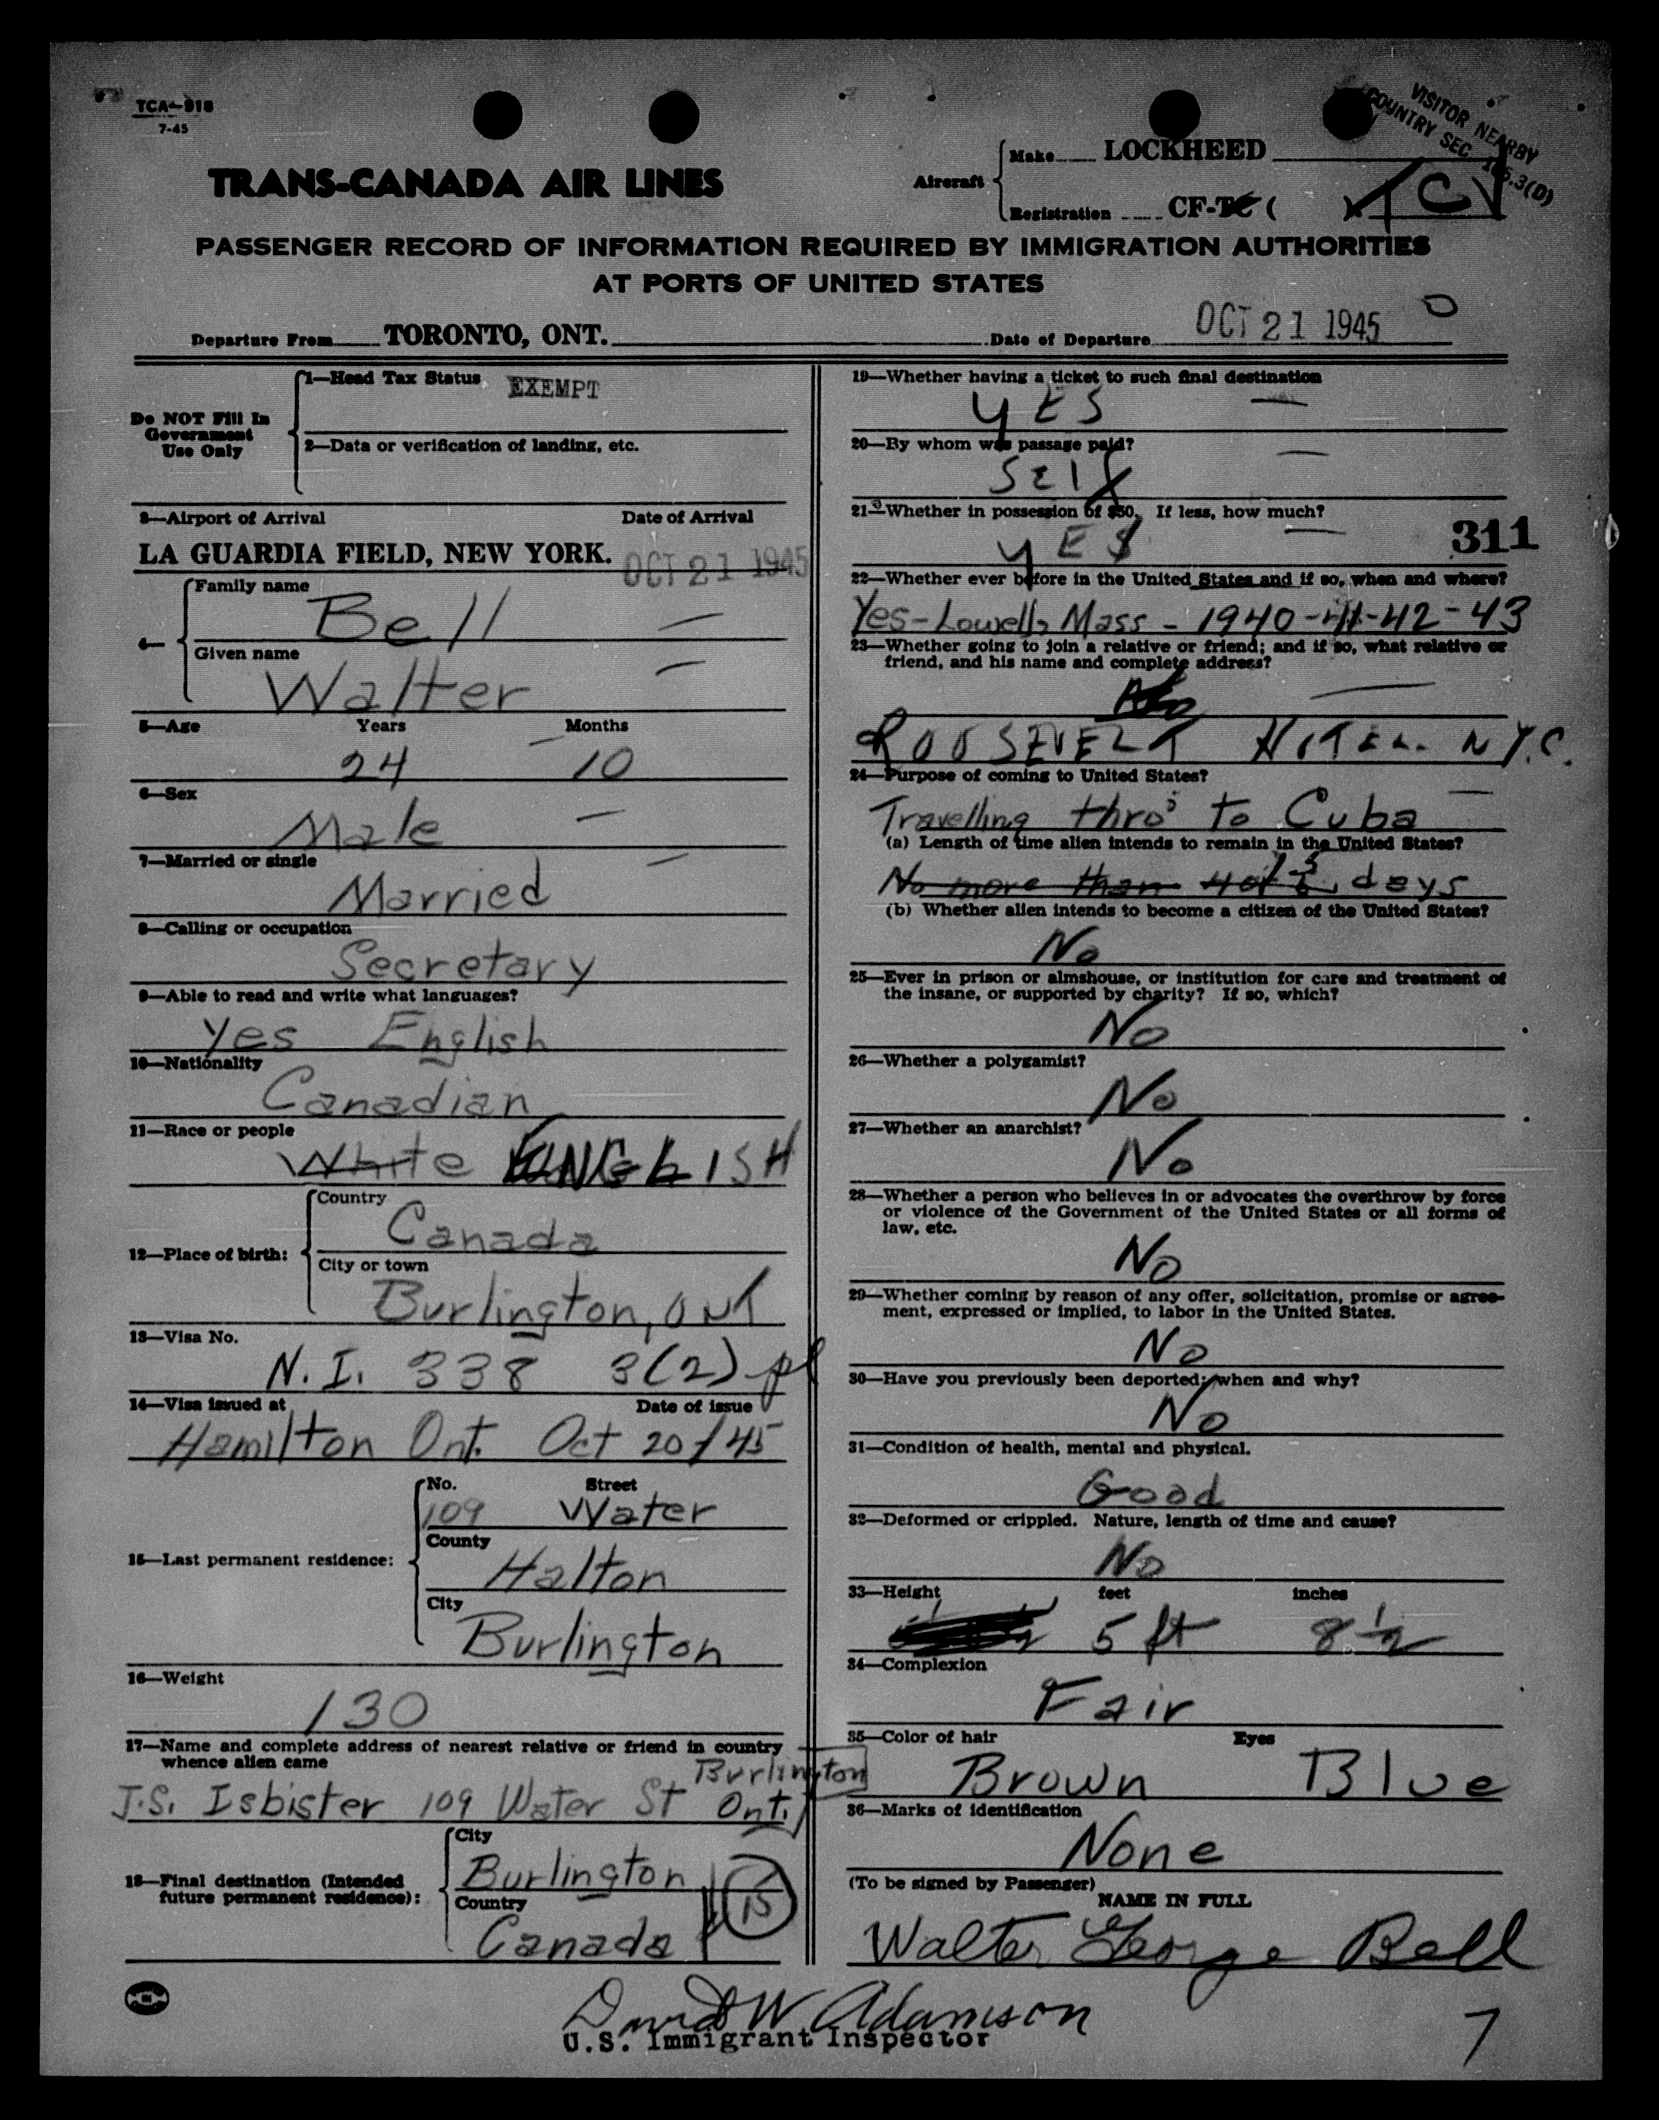 TCA-918
7-45
VISITOR NEARBY
COUNTRY SEC 165.3(D)
TRANS-CANADA AIR LINES
Aircraft
Make LOCKHEED
Registration CF-TC ( TCV
PASSENGER RECORD OF INFORMATION REQUIRED BY IMMIGRATION AUTHORITIES
AT PORTS OF UNITED STATES
Departure From TORONTO, ONT. Date of Departure OCT 21 1945
Do NOT Fill In
Government
Use Only
1—Head Tax Status EXEMPT
2—Data or verification of landing, etc.
3—Airport of Arrival Date of Arrival
LA GUARDIA FIELD, NEW YORK. OCT 21 1945
4—
Family name
Bell
Given name
Walter
5—Age Years Months
24 10
6—Sex
Male
7—Married or single
Married
8—Calling or occupation
Secretary
9—Able to read and write what languages?
Yes English
10—Nationality
Canadian
11—Race or people
White ENGLISH
12—Place of birth:
Country
Canada
City or town
Burlington, ONT
13—Visa No.
N.I. 338 3(2) pl
14—Visa issued at Date of issue
Hamilton Ont. Oct 20/45
15—Last permanent residence:
No. Street
109 Water
County
Halton
City
Burlington
16—Weight
130
17—Name and complete address of nearest relative or friend in country
whence alien came
Burlington
J.S. Isbister 109 Water St Ont.
18—Final destination (Intended
future permanent residence):
City
Burlington
Country
Canada
15
19—Whether having a ticket to such final destination
YES
20—By whom was passage paid?
SELF
21—Whether in possession of $50. If less, how much?
YES
311
22—Whether ever before in the United States and if so, when and where?
Yes-Lowell, Mass - 1940-41-42-43
23—Whether going to join a relative or friend; and if so, what relative or
friend, and his name and complete address?
No
ROOSEVELT HOTEL N.Y.C.
24—Purpose of coming to United States?
Travelling thro' to Cuba
(a) Length of time alien intends to remain in the United States?
No more than 4 of days
(b) Whether alien intends to become a citizen of the United States?
No
25—Ever in prison or almshouse, or institution for care and treatment of
the insane, or supported by charity? If so, which?
No
26—Whether a polygamist?
No
27—Whether an anarchist?
No
28—Whether a person who believes in or advocates the overthrow by force
or violence of the Government of the United States or all forms of
law, etc.
No
29—Whether coming by reason of any offer, solicitation, promise or agree-
ment, expressed or implied, to labor in the United States.
No
30—Have you previously been deported; when and why?
No
31—Condition of health, mental and physical.
Good
32—Deformed or crippled. Nature, length of time and cause?
No
33—Height feet inches
5 ft 8 1/2
34—Complexion
Fair
35—Color of hair Eyes
Brown Blue
36—Marks of identification
None
(To be signed by Passenger)
NAME IN FULL
Walter George Bell
David W Adamson
U.S. Immigrant Inspector
7